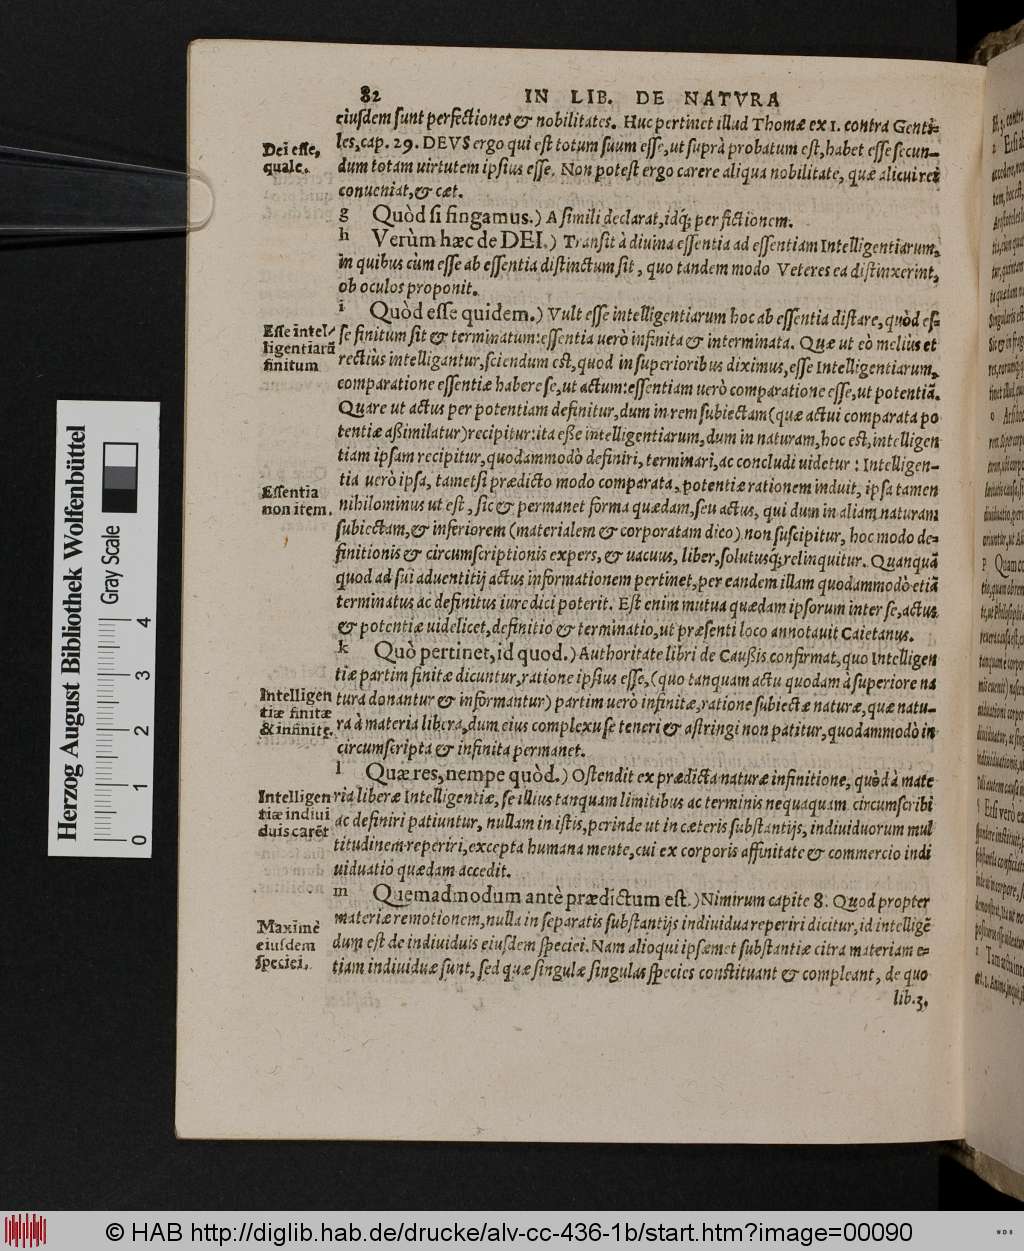 82 IN LIB. DE NATVRA
eiuſdem ſunt perfectiones & nobilitates. Huc pertinet illud Thomæ ex 1. contra Genti-
les, cap. 29. DEVS ergo qui eſt totum ſuum eſſe, ut ſuprà probatum eſt, habet eſſe ſecun-
Dei eſſe,
quale.
dum totam uirtutem ipſius eſſe. Non poteſt ergo carere aliqua nobilitate, quæ alicui rei
conueniat, & cæt.
g Quòd ſi fingamus.) A ſimili declarat, idq; per fictionem.
h Verùm hæc de DEI.) Tranſit à diuina eſſentia ad eſſentiam Intelligentiarum,
in quibus cùm eſſe ab eſſentia diſtinctum ſit, quo tandem modo Veteres ea diſtinxerint,
ob oculos proponit.
i Quòd eſſe quidem.) Vult eſſe intelligentiarum hoc ab eſſentia diſtare, quòd eſ-
Eſſe intel-
ligentiarũ
finitum
ſe finitum ſit & terminatum: eſſentia uerò infinita & interminata. Quæ ut eò melius et
rectiùs intelligantur, ſciendum eſt, quod in ſuperioribus diximus, eſſe Intelligentiarum,
comparatione eſſentiæ habere ſe, ut actum: eſſentiam uerò comparatione eſſe, ut potentiã.
Quare ut actus per potentiam definitur, dum in rem ſubiectam (quæ actui comparata po
tentiæ aßimilatur) recipitur: ita eße intelligentiarum, dum in naturam, hoc eſt, intelligen
tiam ipſam recipitur, quodammodò definiri, terminari, ac concludi uidetur: Intelligen-
tia uerò ipſa, tametſi prædicto modo comparata, potentiæ rationem induit, ipſa tamen
Eſſentia
non item.
nihilominus ut eſt, ſic & permanet forma quædam, ſeu actus, qui dum in aliam naturam
ſubiectam, & inferiorem (materialem & corporatam dico) non ſuſcipitur, hoc modo de-
finitionis & circumſcriptionis expers, & uacuus, liber, ſolutusq; relinquitur. Quanquã
quod ad ſui aduentitij actus informationem pertinet, per eandem illam quodammodò etiã
terminatus ac definitus iure dici poterit. Eſt enim mutua quædam ipſorum inter ſe, actus
& potentiæ uidelicet, definitio & terminatio, ut præſenti loco annotauit Caietanus.
k Quò pertinet, id quod.) Authoritate libri de Caußis confirmat, quo Intelligen
tiæ partim finitæ dicuntur, ratione ipſius eſſe, (quo tanquam actu quodam à ſuperiore na
Intelligen
tiæ finitæ
& infinitę.
tura donantur & informantur) partim uerò infinitæ, ratione ſubiectæ naturæ, quæ natu-
ra à materia libera, dum eius complexu ſe teneri & aſtringi non patitur, quodammodò in
circumſcripta & infinita permanet.
l Quæ res, nempe quòd.) Oſtendit ex prædicta naturæ infinitione, quòd à mate
Intelligen
tiæ indiui
duis carẽt
ria liberæ Intelligentiæ, ſe illius tanquam limitibus ac terminis nequaquam circumſcribi
ac definiri patiuntur, nullam in iſtis, perinde ut in cæteris ſubſtantijs, indiuiduorum mul
titudinem reperiri, excepta humana mente, cui ex corporis affinitate & commercio indi
uiduatio quædam accedit.
m Quemadmodum antè prædictum eſt.) Nimirum capite 8. Quod propter
Maximè
eiuſdem
ſpeciei.
materiæ remotionem, nulla in ſeparatis ſubſtantijs indiuidua reperiri dicitur, id intelligẽ
dum eſt de indiuiduis eiuſdem ſpeciei. Nam alioqui ipſæmet ſubſtantiæ citra materiam e-
tiam indiuiduæ ſunt, ſed quæ ſingulæ ſingulas ſpecies conſtituant & compleant, de quo
lib. 3,
Herzog August Bibliothek Wolfenbüttel
Gray Scale
0 1 2 3 4
© HAB http://diglib.hab.de/drucke/alv-cc-436-1b/start.htm?image=00090